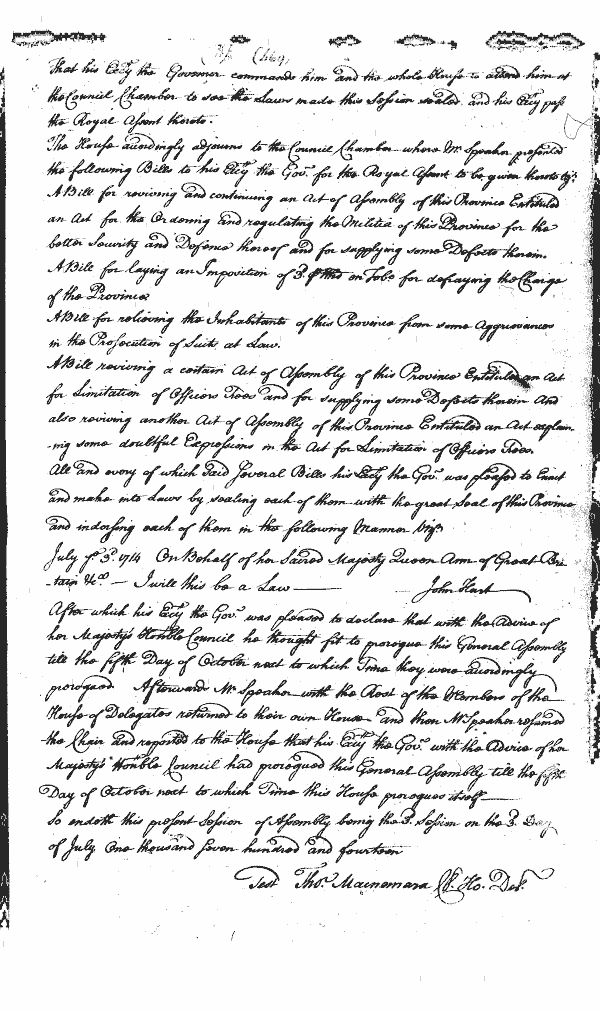 That his Ex:cy the Governor commands him and the whole House to attend him at
the Council Chamber to see the Laws made this Session sealed and his Ex:cy pass
the Royal Assent thereto.
The House accordingly adjourns to the Council Chamber where Mr. Speaker presented
the following Bills to his Ex:cy the Gov.r for the Royal Assent to be given thereto viz:
A Bill for reviving and continuing an Act of Assembly of this Province Entituled
an Act for the Ordering and regulating the Militia of this Province for the
better Security and Defence thereof and for supplying some Defects therein.
A Bill for laying an Imposition of 3. on Tob.o for defraying the Charge
of the Province
A Bill for relieving the Inhabitants of this Province from some Aggrievances
in the Prosecution of Suits at Law.
A Bill reviving a certain Act of Assembly of this Province Entituled an Act
for Limitation of Officers Fees and for supplying some Defects therein And
also reviving another Act of Assembly of this Province Entituled an Act explain
-ing some doubtful Expressions in the Act for Limitation of Officers Fees
All and every of which said several Bills his Ex:cy the Gov.r was pleased to Enact
and make into Laws by sealing each of them with the great Seal of this Province
and indorsing each of them in the following Manner Viz:
July ye 3.d 1714 On Behalf of her Sacred Majesty Queen Ann of Great Bri
-tain &c.a — I will this be a Law — John Hart
After which his Ex:cy the Gov.r was pleased to declare that with the Advice of
her Majesty's Hon:ble Council he thought fit to prorogue this General Assembly
till the fifth Day of October next to which Time they were accordingly
prorogued Afterwards Mr. Speaker with the Rest of the Members of the
House of Delegates returned to their own House and then Mr. Speaker resumed
the Chair and reported to the House that his Ex:cy the Gov.r with the Advice of her
Majesty's Hon:ble Council had prorogued this General Assembly till the fifth
Day of October next to which Time this House prorogues itself —
So endeth this present Session of Assembly being the 3. Session on the 3. Day
of July One thousand seven hundred and fourteen
Test Tho.s Macnemara Cl. Ho. Del.